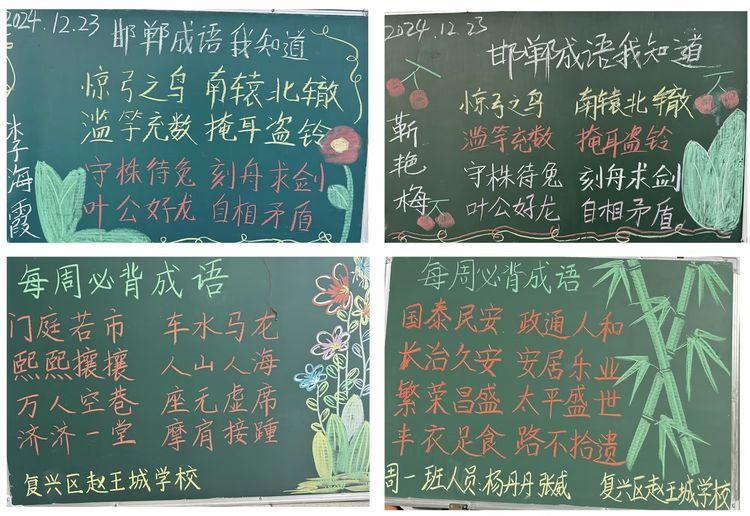 2024.12.23
邯郸成语我知道
惊弓之鸟 南辕北辙
滥竽充数 掩耳盗铃
守株待兔 刻舟求剑
叶公好龙 自相矛盾
李海霞
2024.12.23
邯郸成语我知道
惊弓之鸟 南辕北辙
滥竽充数 掩耳盗铃
守株待兔 刻舟求剑
叶公好龙 自相矛盾
靳艳梅
每周必背成语
门庭若市 车水马龙
熙熙攘攘 人山人海
万人空巷 座无虚席
济济一堂 摩肩接踵
复兴区赵王城学校
每周必背成语
国泰民安 政通人和
长治久安 安居乐业
繁荣昌盛 太平盛世
丰衣足食 路不拾遗
周一班人员:杨丹丹 张威 复兴区赵王城学校